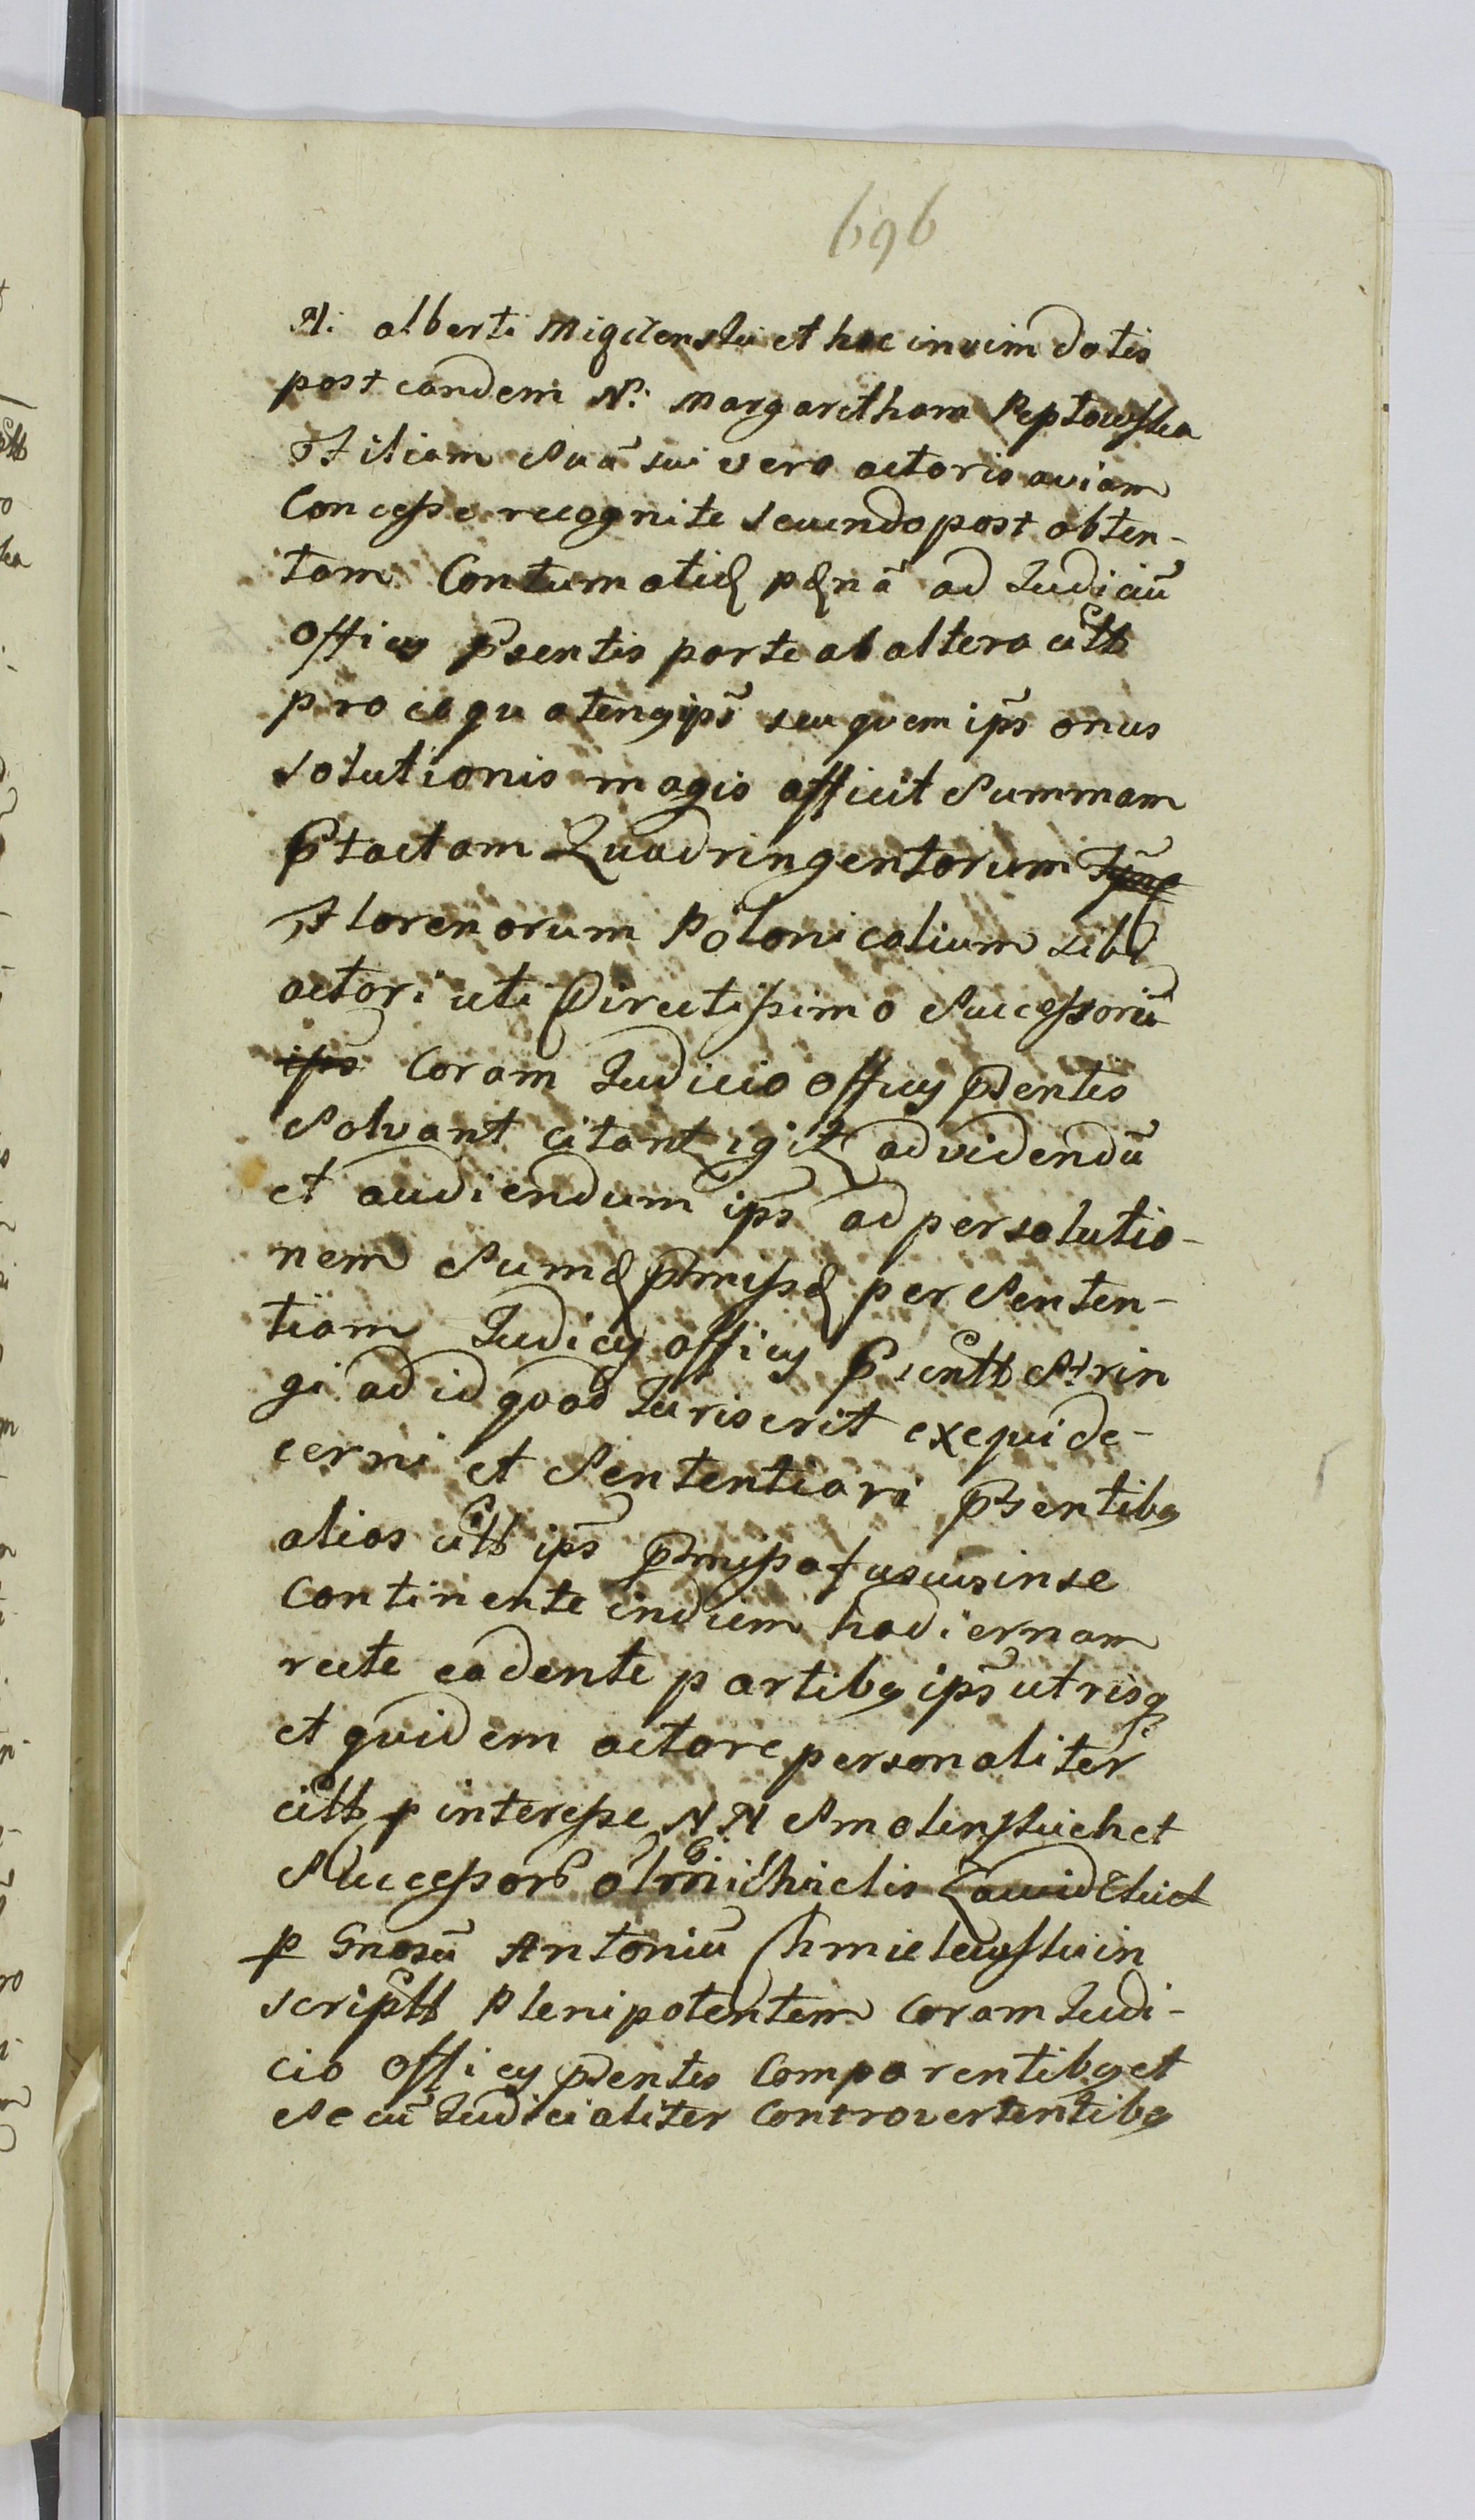 696
N: alberti Migdenski et hoc in vim dotis
post eandem N: Margaretham Peptowska
Filiam Suã sui vero actoris aviam
Concesse recognite secundo post obten-
tam Contumatię pęnã ad Judiciũ
Officij Psentis parte ab altera citt
pro eo quatenq ips̃ seu quem ips̃ onus
solutionis magis afficit Summam
Ptactam Quadringentorum
Florenorum Polonicalium sibi
actori uti Directissimo Successorũ
ips̃ Coram Judicio Officij Psentis
Solvant citant igit ad videndũ
et audiendum ips̃ ad persolutio-
nem Sumę pmissę per Senten-
tiam Judicij Officij Psentt Strin
gi ad id quod Juris erit exequi de-
cerni et Sententiari psentibq
alias citt ips̃ pmissa fusius in se
Continente in diem hodiernam
recte cadente partibq ips̃ utrisq
et quidem actore personaliter
citt p interesse NN Smolinskich et
Successorb olim Michaelis Zawidzkich
p Gnosũ Antoniũ Chmielewski in
scriptt Plenipotentem Coram Judi-
cio Officij psentis Comparentibq et
Secũ Judicialiter Controvertentibq